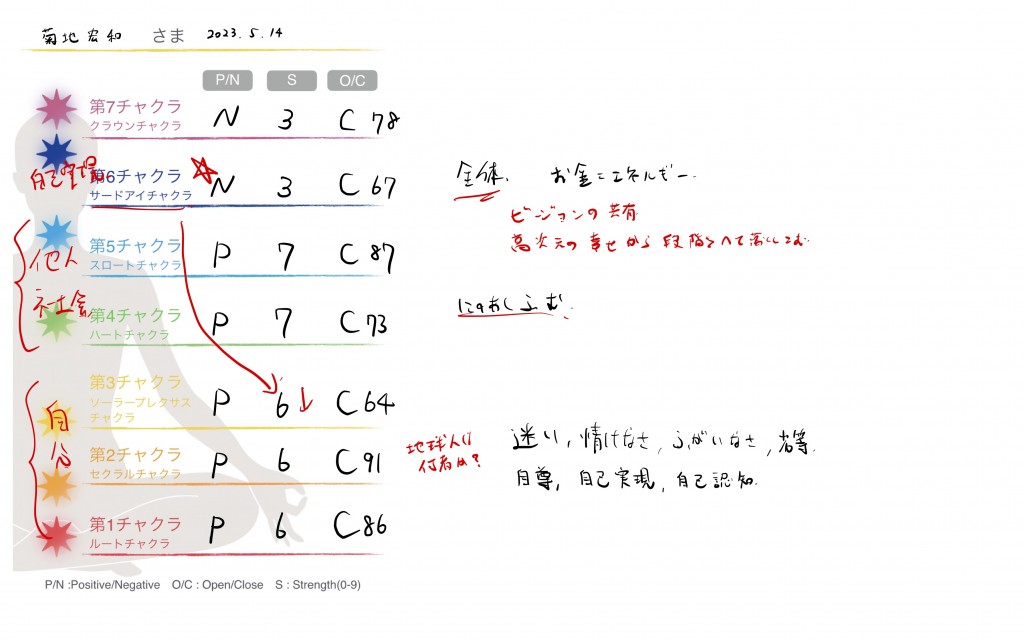 菊地宏和 さま 2023.5.14
P/N S O/C
第7チャクラ
クラウンチャクラ
N 3 C 78
自己実現
第6チャクラ
サードアイチャクラ
☆N 3 C 67
全体、 お金=エネルギー
ビジョンの共有
高次元の幸せから段階をへて落としこむ
他人
社会
第5チャクラ
スロートチャクラ
P 7 C 87
第4チャクラ
ハートチャクラ
P 7 C 73
自分
第3チャクラ
ソーラープレクサス
チャクラ
P 6↓ C 64
地球人は
何者か?
迷い, 情けなさ, ふがいなさ,
自尊, 自己実現, 自己認知
第2チャクラ
セクラルチャクラ
P 6 C 91
第1チャクラ
ルートチャクラ
P 6 C 86
P/N :Positive/Negative O/C : Open/Close S : Strength(0-9)